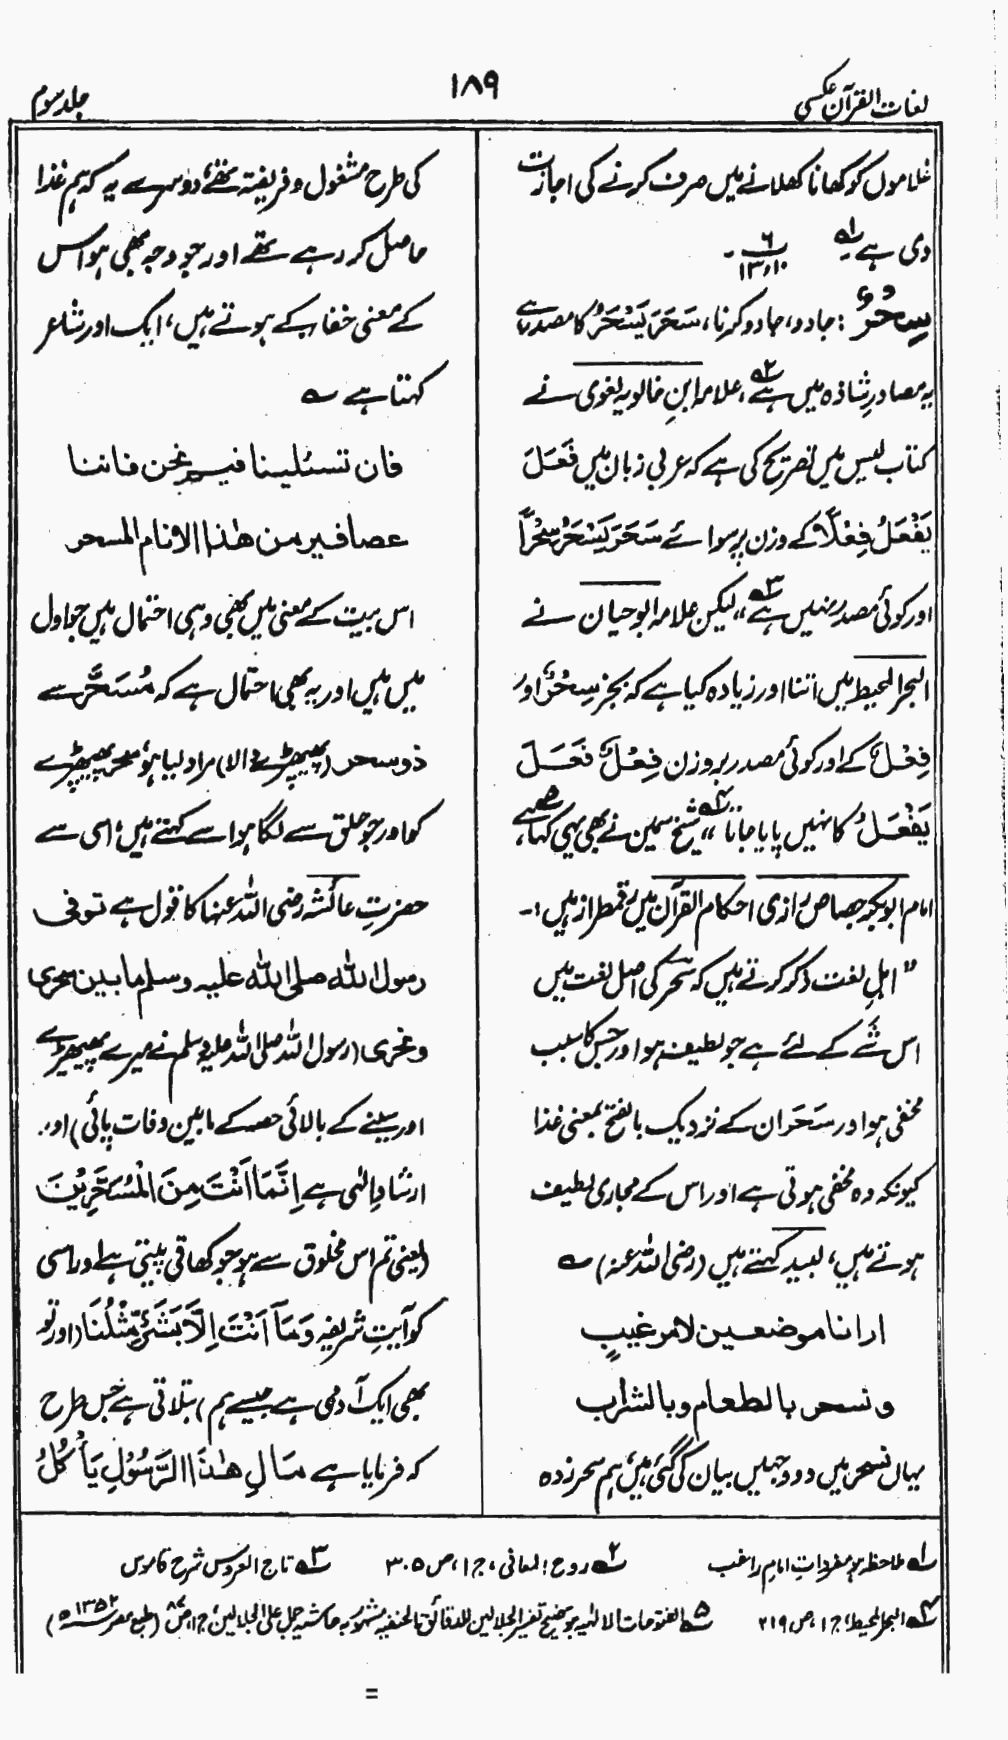 لغات القرآن عکسی
۱۸۹
جلد سوم
غلاموں کو کھانا کھلانے میں صرف کرنے کی اجازت
دی ہے۔ ۱؎ ۶ ۱۰، ۱۳ ۔
سِحْرٌ: جادو، جادو کرنا، سَحَرَ یَسْحَرُ کا مصدر ہے
یہ مصادرِ شاذہ میں ہے ۲؎، علامہ ابنِ خالویہ لغوی نے
کتاب لیس میں تصریح کی ہے کہ عربی زبان میں فَعَلَ
یَفْعَلُ فِعْلاً کے وزن پر سوائے سَحَرَ یَسْحَرُ سِحْراً
اور کوئی مصدر نہیں ہے ۳؎ ،، لیکن علامہ ابو حیان نے
البحر المحیط میں اتنا اور زیادہ کیا ہے کہ بجز سِحْرٌ اور
فِعْلٌ کے اور کوئی مصدر بروزن فِعْلٌ فَعَلَ
یَفْعَلُ کا نہیں پایا جاتا ۴؎،، شیخ سمین نے بھی یہی کہا ہے ۵؎،
امام ابوبکر جصاص رازی احکام القرآن میں رقمطراز ہیں :۔
" اہلِ لغت ذکر کرتے ہیں کہ سحر کی اصل لغت میں
اس شے کے لئے ہے جو لطیف ہو اور جس کا سبب
مخفی ہو اور سَحَر ان کے نزدیک بالفتح بمعنی غذا
کیونکہ وہ مخفی ہوتی ہے اور اس کے مجاری لطیف
ہوتے ہیں، لبید کہتے ہیں (رضی اللہ عنہ) ؎
ارانا موضعین لامر غیبٍ
ونسحر بالطعام وبالشراب
یہاں نسحر میں دو وجہیں بیان کی گئی ہیں، ہم سحر زدہ
کی طرح مشغول و فریفتہ تھے، دوسرے یہ کہ ہم غذا
حاصل کر رہے تھے اور جو وجہ بھی ہو اس
کے معنی خفا کے ہوتے ہیں، ایک اور شاعر
کہتا ہے ؎
فان تسئلینا فیم نحن فاننا
عصافیر من ھٰذا الانام المسحر
اس بیت کے معنی میں بھی وہی احتمال ہیں جو اول
میں ہیں اور یہ بھی احتمال ہے کہ مُسَحَّر سے
ذوسحر (پھیپھڑے والا) مراد لیا ہو، سحر پھیپھڑے
کو اور جو حلق سے لگا ہو اسے کہتے ہیں؛ اسی سے
حضرتِ عائشہ رضی اللہ عنہا کا قول ہے توفی
رسول اللہ صلی اللہ علیہ وسلم مابین سحری
ونحری (رسول اللہ صلی اللہ علیہ وسلم نے میرے پھیپھڑے
اور سینے کے بالائی حصہ کے مابین وفات پائی) اور
ارشادِ الٰہی ہے اِنَّمَا اَنْتَ مِنَ الْمُسَحَّرِیْنَ
(یعنی تم اس مخلوق سے ہو جو کھاتی پیتی ہے) اور اسی
کو آیتِ شریفہ وَمَا اَنْتَ اِلَّا بَشَرٌ مِّثْلُنَا (اور تو
بھی ایک آدمی ہے جیسے ہم) بتلاتی ہے جس طرح
کہ فرمایا ہے مَالِ ھٰذَا الرَّسُوْلِ یَأْکُلُ
۱؎ ملاحظہ ہو مفرداتِ امام راغب ۲؎ روح المعانی، ج ۱، ص ۳۰۵ ۳؎ تاج العروس شرح قاموس
۴؎ البحر المحیط، ج ۱، ص ۲۱۹ ۵؎ الفتوحات الالٰہیہ بتوضیح تفسیر الجلالین للدقائق الخفیہ مشہور بہ حاشیہ جمل علی الجلالین، ج ۱، ص ۸۷ (طبع مصر ۱۳۵۲ھ)